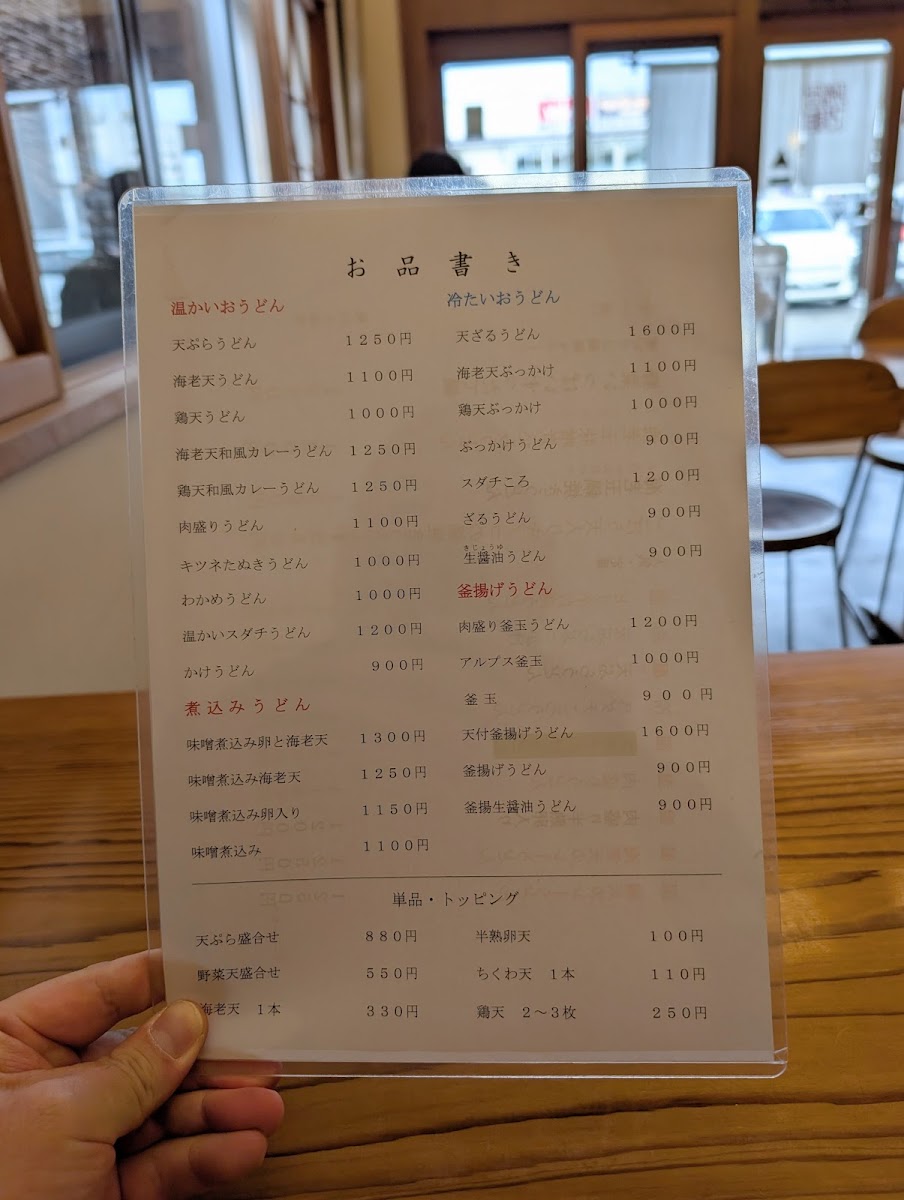 お品書き
温かいおうどん
天ぷらうどん 1250円
海老天うどん 1100円
鶏天うどん 1000円
海老天和風カレーうどん 1250円
鶏天和風カレーうどん 1250円
肉盛りうどん 1100円
キツネたぬきうどん 1000円
わかめうどん 1000円
温かいスダチうどん 1200円
かけうどん 900円
煮込みうどん
味噌煮込み卵と海老天 1300円
味噌煮込み海老天 1250円
味噌煮込み卵入り 1150円
味噌煮込み 1100円
冷たいおうどん
天ざるうどん 1600円
海老天ぶっかけ 1100円
鶏天ぶっかけ 1000円
ぶっかけうどん 900円
スダチころ 1200円
ざるうどん 900円
きじょうゆ
生醤油うどん 900円
釜揚げうどん
肉盛り釜玉うどん 1200円
アルプス釜玉 1000円
釜玉 900円
天付釜揚げうどん 1600円
釜揚げうどん 900円
釜揚生醤油うどん 900円
単品・トッピング
天ぷら盛合せ 880円
野菜天盛合せ 550円
海老天 1本 330円
半熟卵天 100円
ちくわ天 1本 110円
鶏天 2〜3枚 250円